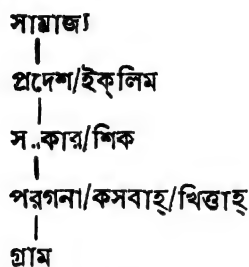 সাম্রাজ্য
প্রদেশ/ইক্‌লিম
স..কার/শিক
পরগনা/কসবাহ্/খিত্তাহ্
গ্রাম